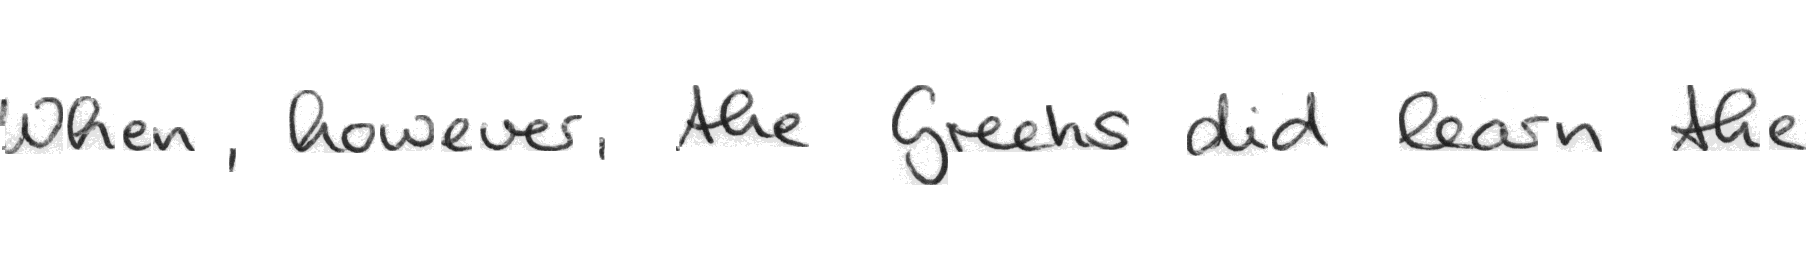 When, however, the Greeks did learn the